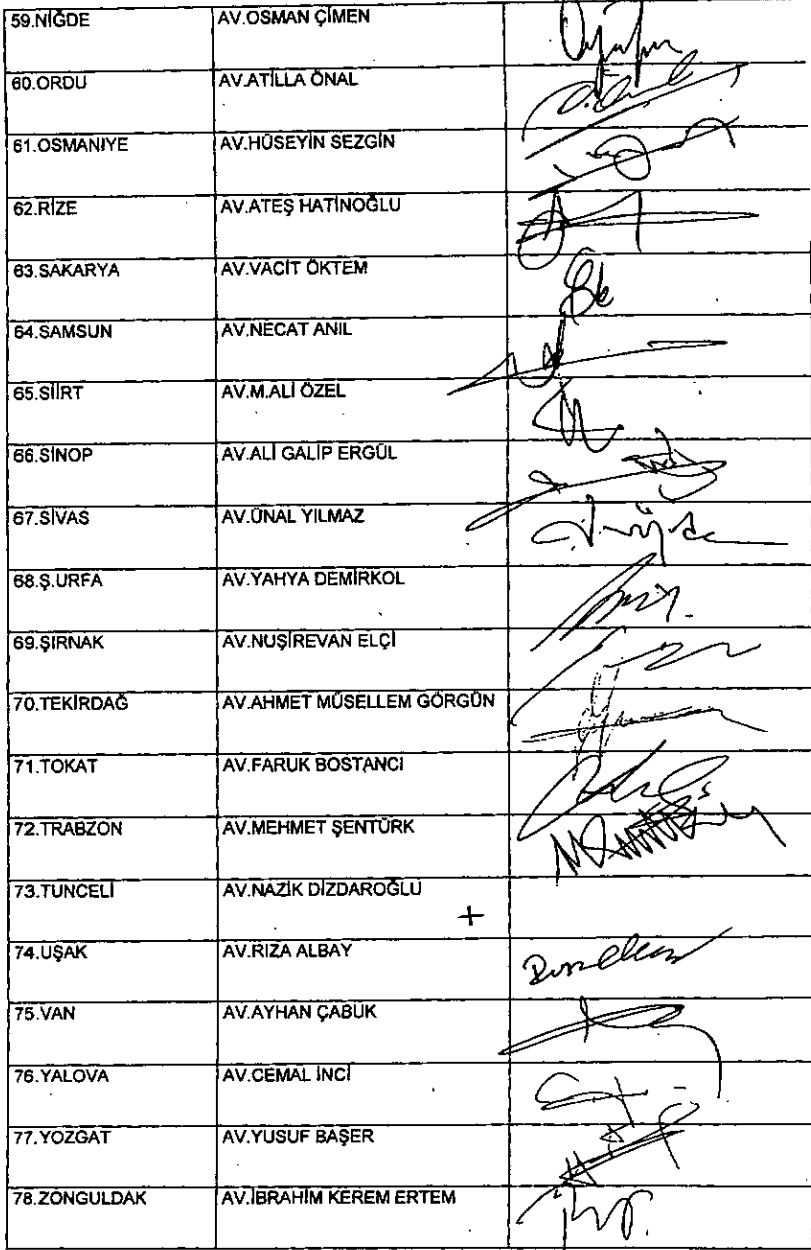 59.NİĞDE AV.OSMAN ÇİMEN
60.ORDU AV.ATİLLA ÖNAL
61.OSMANİYE AV.HÜSEYİN SEZGİN
62.RİZE AV.ATEŞ HATİNOĞLU
63.SAKARYA AV.VACİT ÖKTEM
64.SAMSUN AV.NECAT ANIL
65.SİİRT AV.M.ALİ ÖZEL
66.SİNOP AV.ALİ GALİP ERGÜL
67.SİVAS AV.ÜNAL YILMAZ
68.Ş.URFA AV.YAHYA DEMİRKOL
69.ŞIRNAK AV.NUŞİREVAN ELÇİ
70.TEKİRDAĞ AV.AHMET MÜSELLEM GÖRGÜN
71.TOKAT AV.FARUK BOSTANCI
72.TRABZON AV.MEHMET ŞENTÜRK
73.TUNCELİ AV.NAZİK DİZDAROĞLU +
74.UŞAK AV.RIZA ALBAY
75.VAN AV.AYHAN ÇABUK
76.YALOVA AV.CEMAL İNCİ
77.YOZGAT AV.YUSUF BAŞER
78.ZONGULDAK AV.İBRAHİM KEREM ERTEM